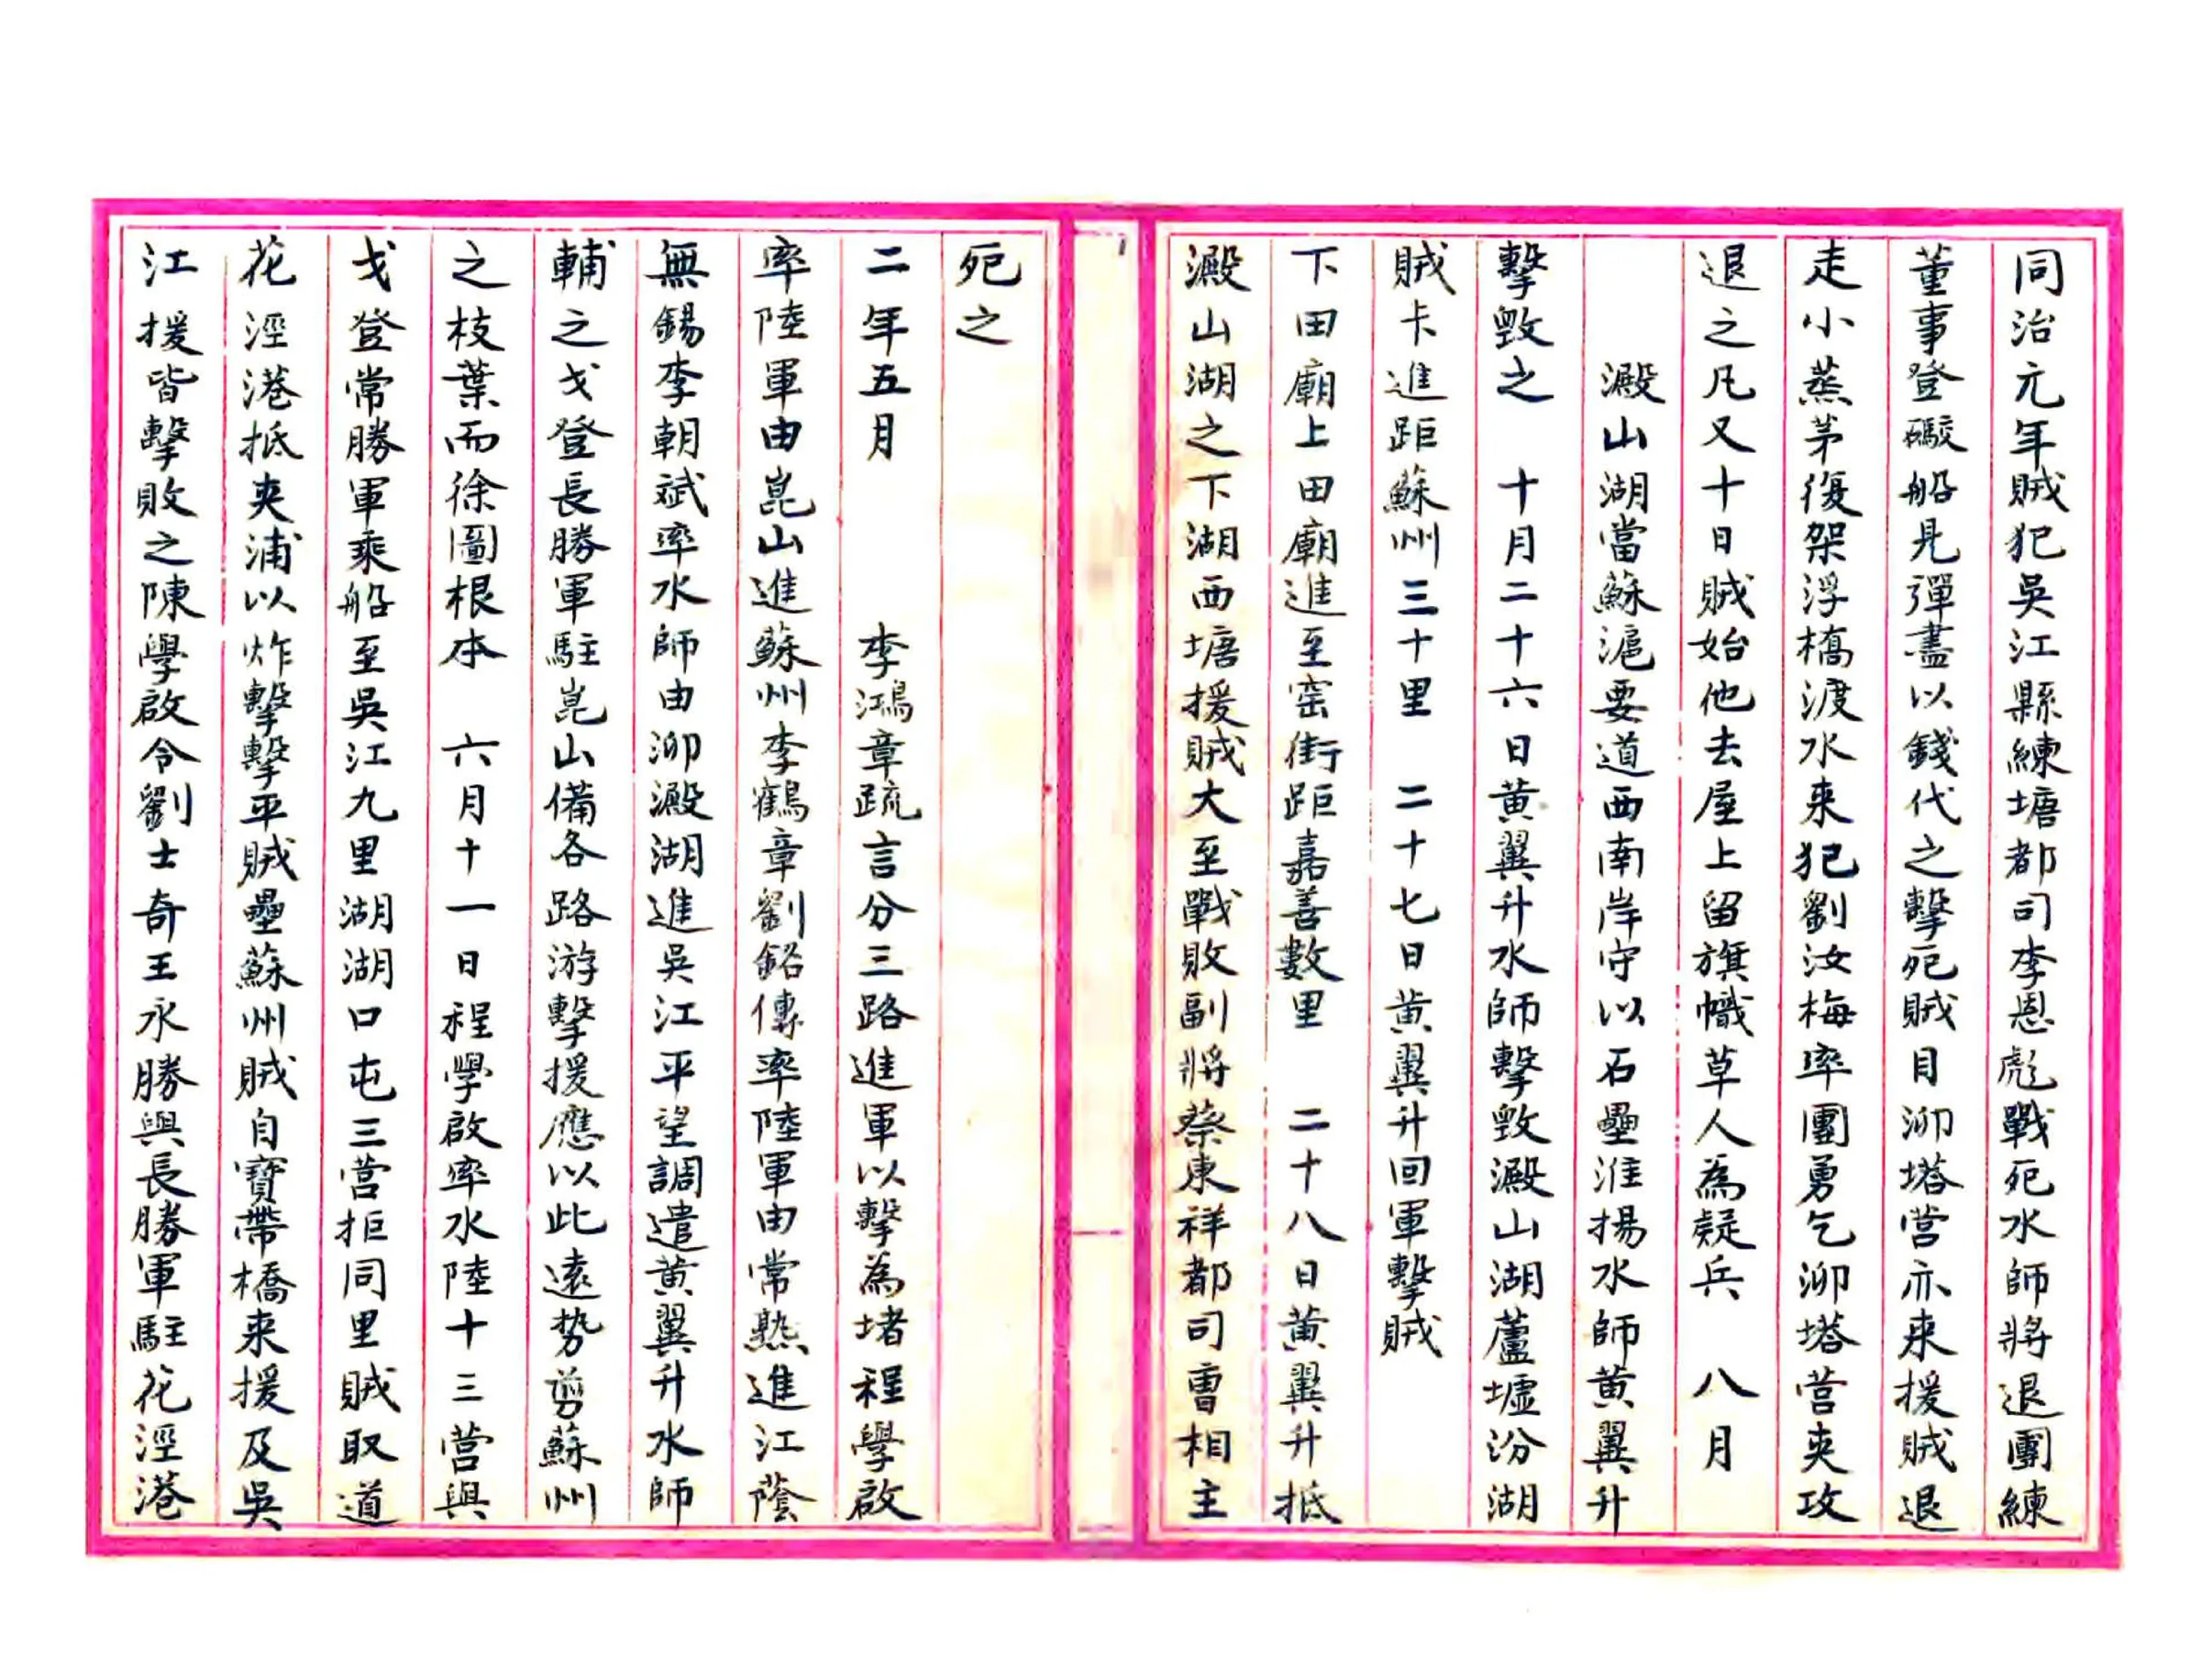 同治元年賊犯吳江縣練塘都司李恩彪戰死水師將退團練
董事登礮船見彈盡以錢代之擊死賊目泖塔营亦来援賊退
走小蒸茅復架浮橋渡水来犯劉汝梅率團勇乞泖塔营夾攻
退之凡又十日賊始他去屋上留旗幟草人為疑兵　八月
澱山湖當蘇滬要道西南岸守以石壘淮揚水師黄翼升
擊毀之　十月二十六日黄翼升水師擊毀澱山湖蘆墟汾湖
賊卡進距蘇州三十里　二十七日黄翼升回軍擊賊
下田廟上田廟進至窑街距嘉善數里　二十八日黄翼升抵
澱山湖之下湖西塘援賊大至戰敗副將蔡東祥都司曹相主
死之
二年五月　　　李鴻章疏言分三路進軍以擊為堵程學啟
率陸軍由崑山進蘇州李鶴章劉銘傳率陸軍由常熟進江蔭
無錫李朝斌率水師由泖澱湖進吳江平望調遣黄翼升水師
輔之戈登長勝軍駐崑山備各路游擊援應以此遠势剪蘇州
之枝葉而徐圖根本　六月十一日程學啟率水陸十三营與
戈登常勝軍乘船至吳江九里湖湖口屯三营拒同里賊取道
花涇港抵夾浦以炸擊擊平賊壘蘇州賊自寶帶橋来援及吳
江援皆擊敗之陳學啟令劉士奇王永勝與長勝軍駐花涇港